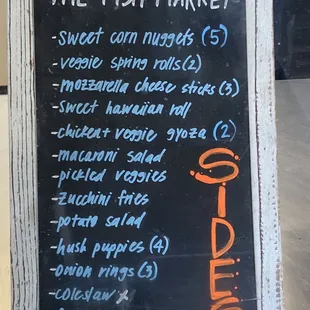 THE FISH MARKET
-sweet corn nuggets (5)
-veggie spring rolls (2)
-mozzarella cheese sticks (3)
-sweet hawaiian roll
-chicken + veggie gyoza (2)
-macaroni salad
-pickled veggies
-zucchini fries
-potato salad
-hush puppies (4)
-onion rings (3)
-coleslaw
SIDES